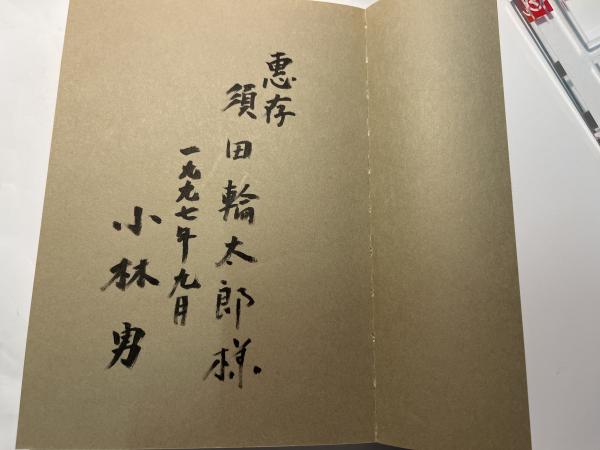 惠存
須田輪太郎様
一九九七年九月
小林男